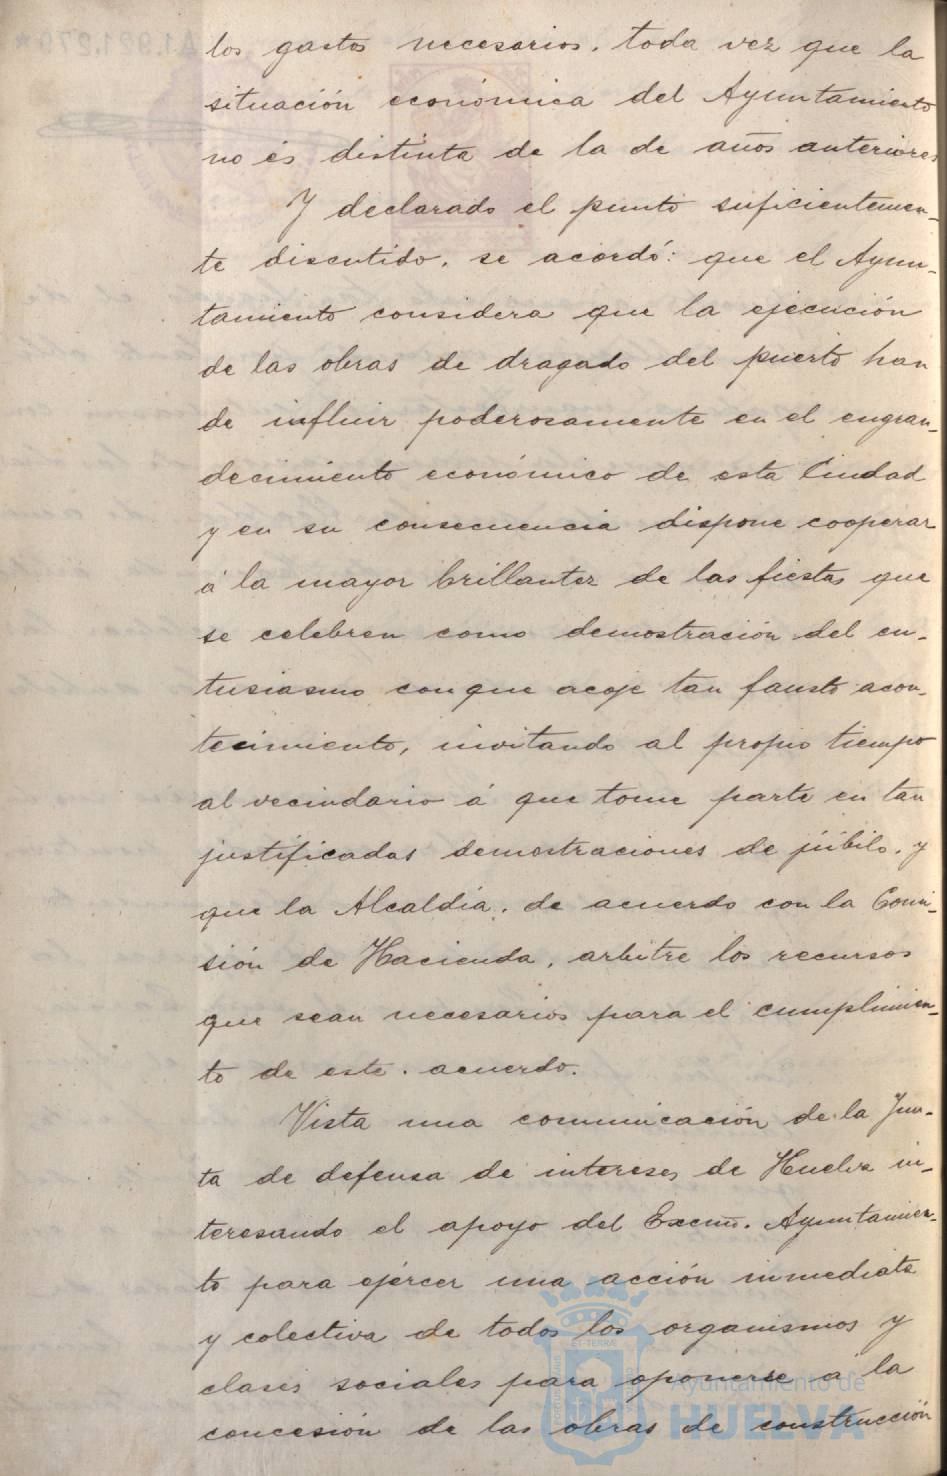 los gastos necesarios, toda vez que la
situación económica del Ayuntamiento
no és distinta de la de años anteriores
Y declarado el punto suficientemen-
te discutido, se acordó: que el Ayun-
tamiento considera que la ejecución
de las obras de dragado del puerto han
de influir poderosamente en el engran-
decimiento económico de esta Ciudad
y en su consecuencia dispone cooperar
á la mayor brillantez de las fiestas que
se celebren como demostración del en-
tusiasmo con que acoje tan fausto acon-
tecimiento, invitando al propio tiempo
al vecindario á que tome parte en tan
justificadas demostraciones de júbilo, y
que la Alcaldía, de acuerdo con la Comi-
sión de Hacienda, arbitre los recursos
que sean necesarios para el cumplimien-
to de este acuerdo.
Vista una comunicación de la Jun-
ta de defensa de intereses de Huelva in-
teresando el apoyo del Excmo. Ayuntamien-
to para ejércer una acción inmediata
y colectiva de todos los organismos y
clases sociales para oponerse á la
concesión de las obras de construcción
Ayuntamiento de
HUELVA